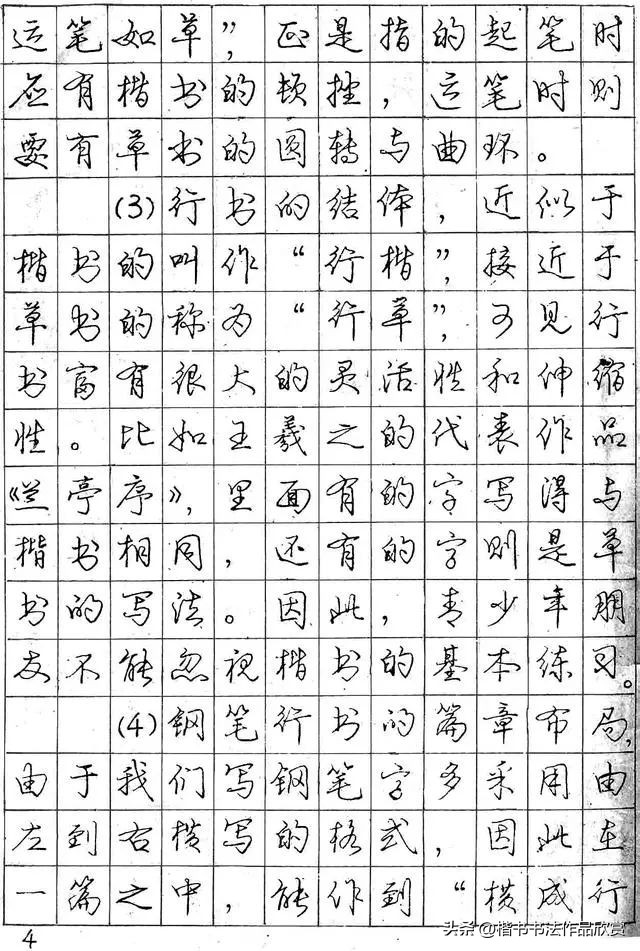 运笔如草”，正是指的起笔时
应有楷书的顿挫，运笔时则
要有草书的圆转与曲环。
(3)行书的结体，近似于
楷书的叫作“行楷”，接近于
草书的称为“行草”，可见行
书富有很大的灵活性和伸缩
性。比如王羲之的代表作品
《兰亭序》，里面有的字写得与
楷书相同，还有的字则是草
书的写法。因此，青少年朋
友不能忽视楷书的基本练习。
(4)钢笔行书的篇章布局，
由于我们写钢笔字多采用由
左到右横写的格式，因此在
一篇之中，能作到“横成行
4
头条@楷书书法作品欣赏